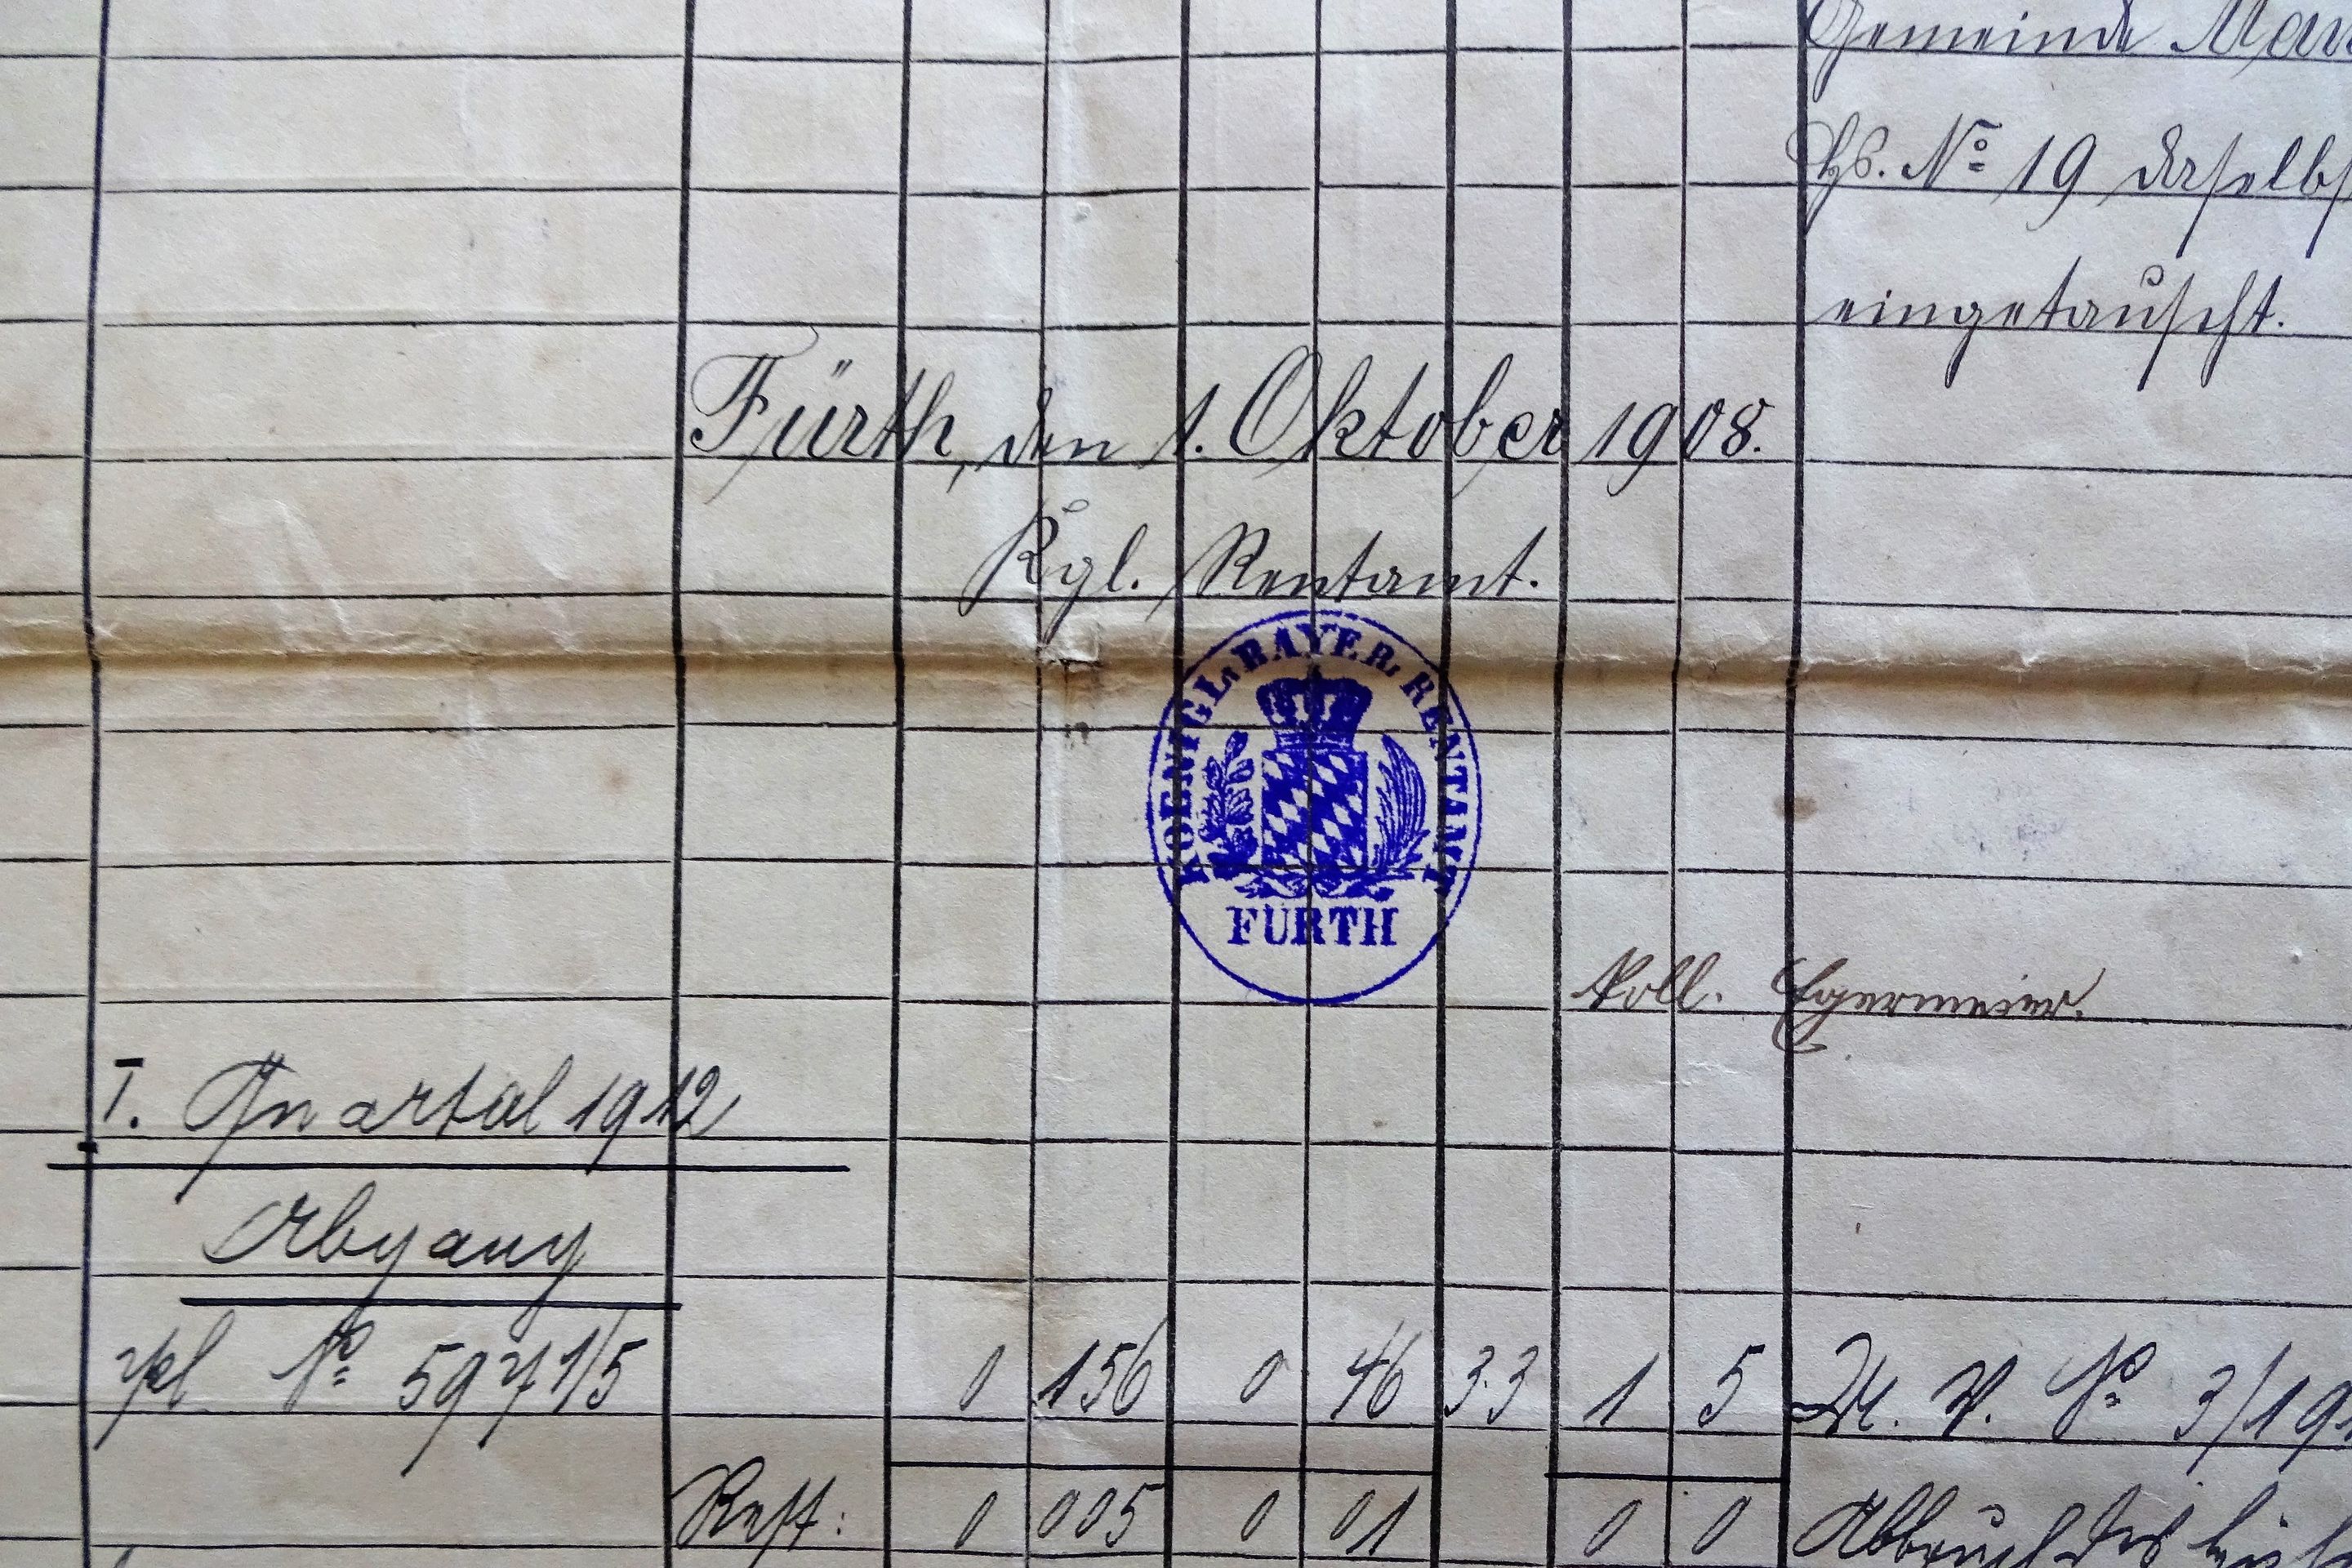 Gemeinde
Hs. No 19 daselbst
eingetauscht.
Fürth, den 1. Oktober 1908.
Kgl. Rentamt.
KOENIGL. BAYER. RENTAMT
FÜRTH
Egermeier.
I. Quartal 1912
Abgang
Pl No 597 1/5 0 156 0 46 3.3 1 5 No 3/19
Rest: 0 005 0 01 0 0 Abbruch des